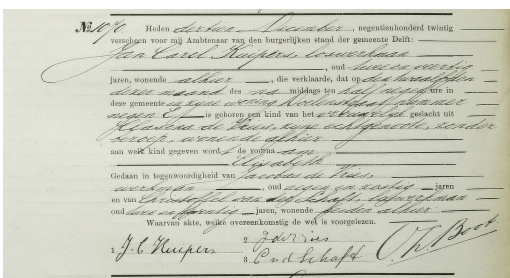 No. 1070. Heden dertien December, negentienhonderd twintig
verscheen voor mij Ambtenaar van den burgerlijken stand der gemeente Delft:
Jan Carel Kuipers, loswerkman
, oud twee en veertig
jaren, wonende alhier, die verklaarde, dat op den twaalfden
dezer maand des na middags ten half negen ure in
deze gemeente in zijne woning nummer
negen is geboren een kind van het vrouwelijk geslacht uit
de Vries, zijne echtgenoote, zonder
beroep, wonende alhier
aan welk kind gegeven word de voorna am
Elisabeth
Gedaan in tegenwoordigheid van Jacobus de Vries
werkman, oud negen en zestig jaren
en van Christoffel van der Schaft,
oud jaren, wonende beiden alhier
Waarvan akte, welke overeenkomstig de wet is voorgelezen.
1 J. C. Kuipers
2
3 C v d Schaft
Boot